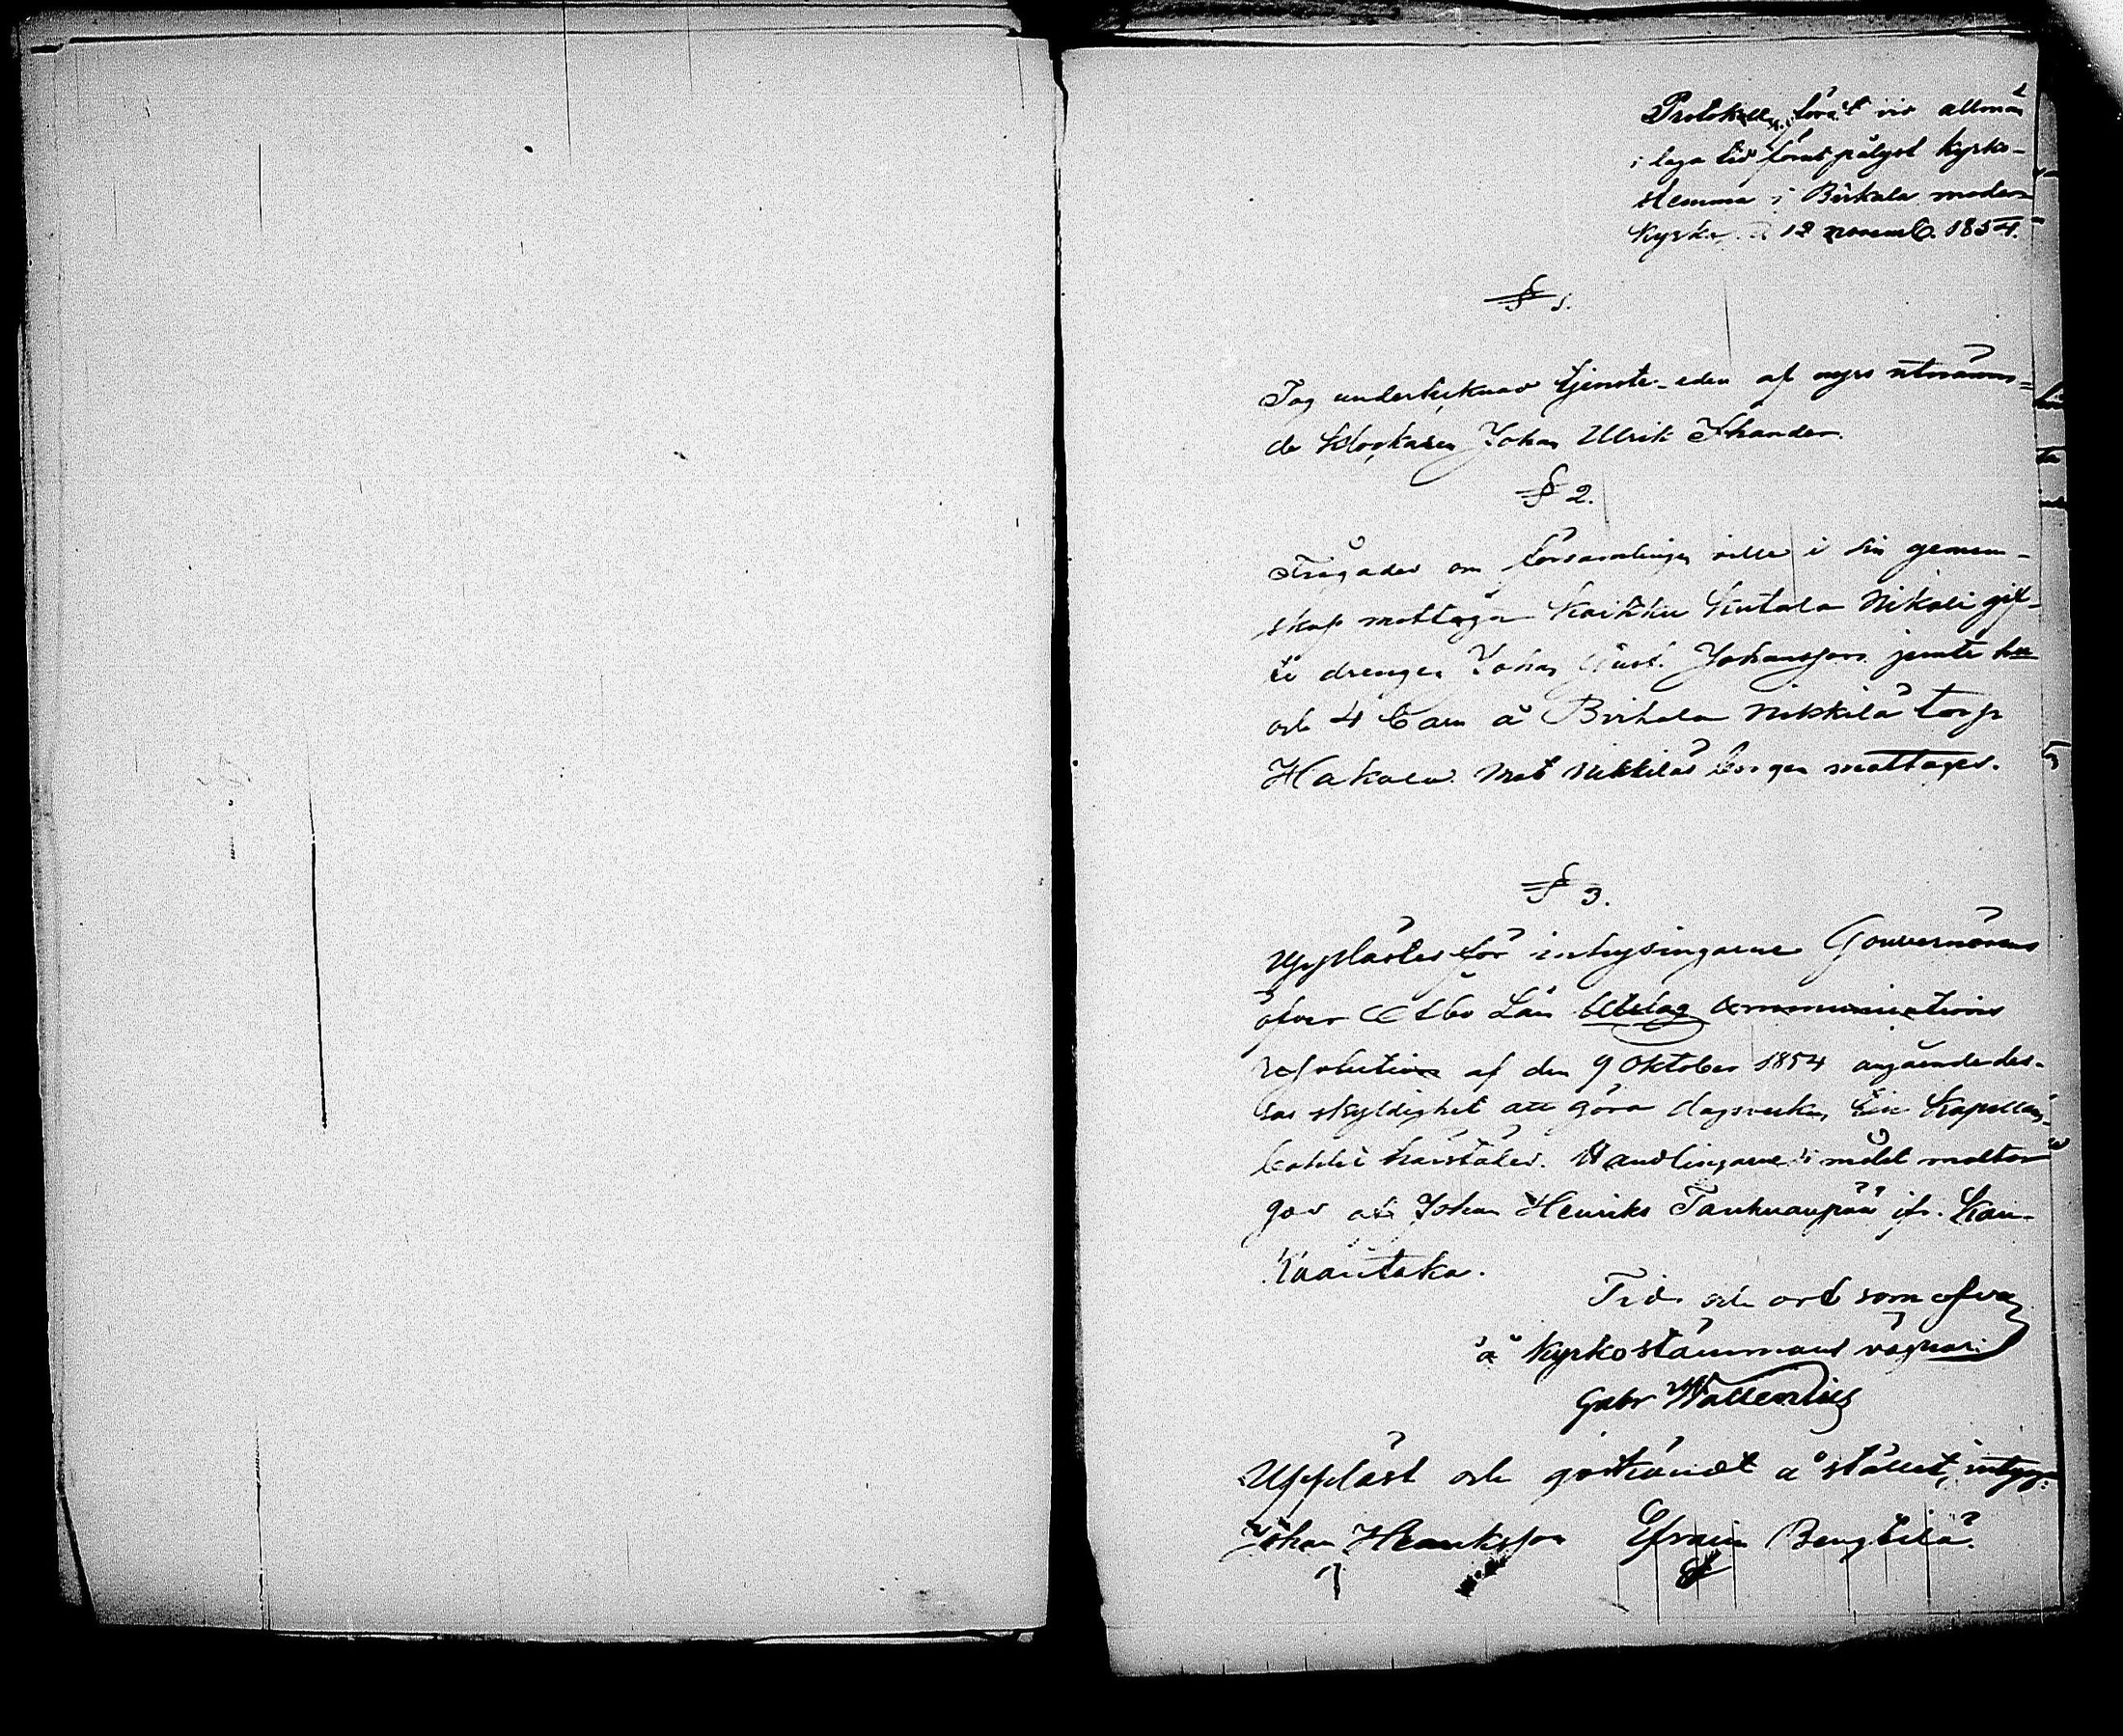 Protokoll, fördt vid allmän
i laga tid förut pålyst kyrko-
stemma i Birkala moder-
kyrka d 12 novemb. 1854.
§ 1.
Tog undertecknad tjenste-eden af nyss utnämn-
de klockaren Johan Ulrik Ithander.
§ 2.
Frågades om församlingen ville i sin gemen-
skap mottaga Kaikku Kutala Nikoli gif-
te drengen Johan Gust. Johansson jemte hu
och 4 barn å Birkala Nikkilä torp
Hakala. Mot Nikkiläs borgen mottages.
§ 3.
Upplästes för inhysingarne Gouvernörens
öfver Åbo Län utslag communications
resolution af den 9 Oktober 1854 angående des-
sas skyldighet att göra dagsverken till Kapellans-
bohlet härstädes. Handlingarne i målet motto-
gos af Johan Henriks Tanhuanpää ifr. Kan-
kaantaka.
Tid och ort som ofvan
å Kyrkostämmans vägnar:
Gabr Wallenius
Uppläst och godkändt å stället, intyga:
Johan Henriksson Efraim Bengtilä.